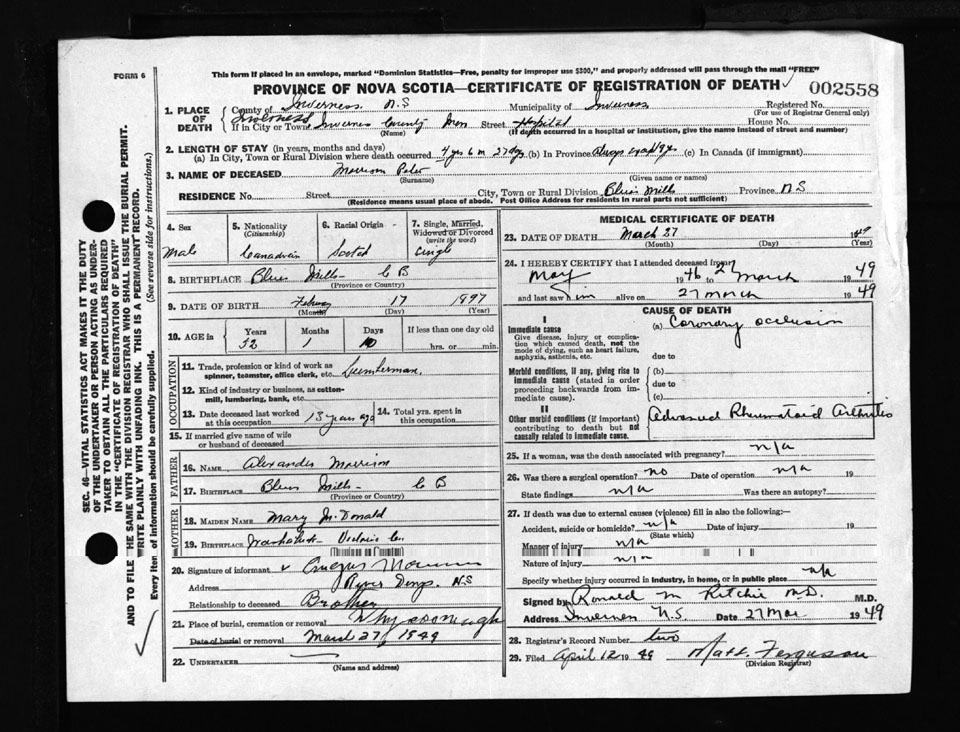 FORM 6
This form if placed in an envelope, marked "Dominion Statistics—Free, penalty for improper use $300," and properly addressed will pass through the mail "FREE"
PROVINCE OF NOVA SCOTIA—CERTIFICATE OF REGISTRATION OF DEATH
002558
1. PLACE OF DEATH
County of Inverness N.S Municipality of Inverness Registered No.
(For use of Registrar General only)
Inverness
If in City or Town Inverness County Mem Street Hospital House No.
(Name) (If death occurred in a hospital or institution, give the name instead of street and number)
2. LENGTH OF STAY (in years, months and days)
(a) In City, Town or Rural Division where death occurred 4 yrs 6 m 27 dys (b) In Province Always (c) In Canada (if immigrant)
3. NAME OF DECEASED Morrison Peter
(Surname) (Given name or names)
RESIDENCE No. Street City, Town or Rural Division Blues Mills Province N S
(Residence means usual place of abode. Post Office Address for residents in rural parts not sufficient)
4. Sex
Male
5. Nationality (Citizenship)
Canadian
6. Racial Origin
Scotch
7. Single, Married, Widowed or Divorced (write the word)
Single
8. BIRTHPLACE Blues Mills C B
(Province or Country)
9. DATE OF BIRTH 17 1897
(Month) (Day) (Year)
10. AGE in
Years Months Days If less than one day old
52 1 10 hrs. or min.
OCCUPATION
11. Trade, profession or kind of work as spinner, teamster, office clerk, etc. Lumberman.
12. Kind of industry or business, as cotton-mill, lumbering, bank, etc.
13. Date deceased last worked at this occupation 13 years ago
14. Total yrs. spent in this occupation
15. If married give name of wife or husband of deceased
FATHER
16. NAME Alexander Morrison
17. BIRTHPLACE Blues Mills C B
(Province or Country)
MOTHER
18. MAIDEN NAME Mary McDonald
19. BIRTHPLACE Victoria Co.
20. Signature of informant Angus Morrison
Address River Denys N.S
Relationship to deceased Brother
21. Place of burial, cremation or removal Whycocomagh
Date of burial or removal March 27 1949
22. UNDERTAKER
(Name and address)
MEDICAL CERTIFICATE OF DEATH
23. DATE OF DEATH March 27 1949
(Month) (Day) (Year)
24. I HEREBY CERTIFY that I attended deceased from
May 1946 to 27 March 1949
and last saw him alive on 27 March 1949
CAUSE OF DEATH
I
Immediate cause
Give disease, injury or complication which caused death, not the mode of dying, such as heart failure, asphyxia, asthenia, etc.
(a) Coronary occlusion
due to
Morbid conditions, if any, giving rise to immediate cause (stated in order proceeding backwards from immediate cause).
(b)
due to
(c)
II
Other morbid conditions (if important) contributing to death but not causally related to immediate cause.
Advanced Rheumatoid Arthritis
25. If a woman, was the death associated with pregnancy? n/a
26. Was there a surgical operation? no Date of operation n/a 19
State findings n/a Was there an autopsy?
27. If death was due to external causes (violence) fill in also the following:—
Accident, suicide or homicide? n/a Date of injury 19
(State which)
Manner of injury n/a
Nature of injury n/a
Specify whether injury occurred in industry, in home, or in public place n/a
Signed by Ronald M Ritchie M.D. M.D.
Address Inverness N.S. Date 27 Mar 1949
28. Registrar's Record Number two
29. Filed April 12 1949 Matt. Ferguson
(Division Registrar)
SEC. 46—VITAL STATISTICS ACT MAKES IT THE DUTY
OF THE UNDERTAKER OR PERSON ACTING AS UNDER-
TAKER TO OBTAIN ALL THE PARTICULARS REQUIRED
IN THE "CERTIFICATE OF REGISTRATION OF DEATH"
AND TO FILE THE SAME WITH THE DIVISION REGISTRAR WHO SHALL ISSUE THE BURIAL PERMIT.
WRITE PLAINLY WITH UNFADING INK. THIS IS A PERMANENT RECORD.
Every item of information should be carefully supplied. (See reverse side for instructions.)